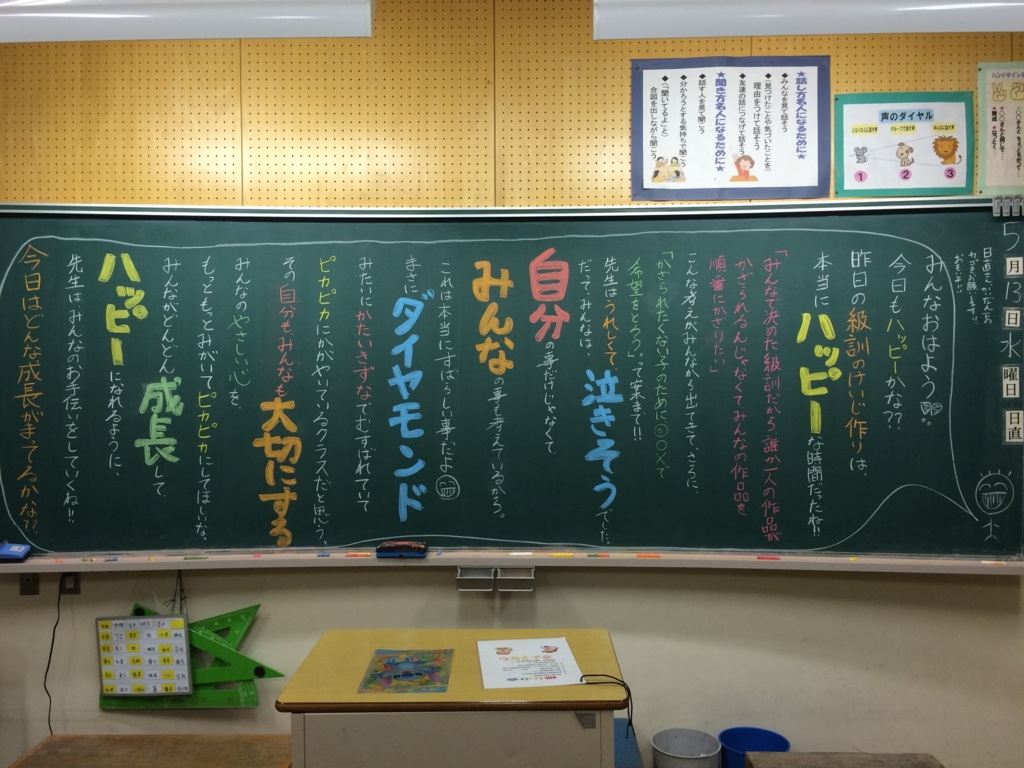 みんなおはよう
今日もハッピーかな??
昨日の級訓のけいじ作りは、
本当にハッピーな時間だったね!!
「みんなで決めた級訓だから、誰か一人の作品が
かざられるんじゃなくてみんなの作品を
順番にかざりたい」
こんな考えがみんなから出てきて、さらに、
「かざられたくない子のために○○×で
希望をとろう」って案まで!!
先生はうれしくて、泣きそうでした。
だってみんなは、
自分の事だけじゃなくて
みんなの事も考えているから。
これは本当にすばらしい事だよ
まさにダイヤモンド
みたいにかたいきずなでむすばれていて
ピカピカにかがやいているクラスだと思う。
その自分もみんなも大切にする
みんなのやさしい心を、
もっともっとみがいてピカピカにしてほしいな。
みんながどんどん成長して、
ハッピーになれるように、
先生はみんなのお手伝いをしていくね!!
今日はどんな成長がまってるかな??
5
月
13
日
水
曜日
日直
★話し方名人になるために★
◆みんなを見て話そう
◆(見つけたことや気づいたことを)
理由をつけて話そう
◆友達の話につなげて話そう
★聞き方名人になるために★
◆話す人を見て聞こう
◆分かろうとする気持ちで聞こう
◆(「聞いてるよ」と)
合図を出しながら聞こう
声のダイヤル
1
2
3